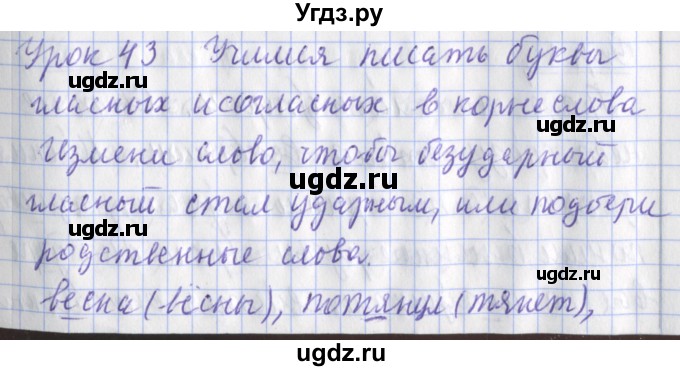 Угдз.ру
Урок 43 Учимся писать буквы
ugdz.ru ugdz.ru
гласных и согласных в корне слова
ugdz.ru
Измени слово, чтобы безударный
ugdz.ru
гласный стал ударным, или подбери
ugdz.ru ugdz.ru
родственные слова.
весна (вёсны), потянул (тянет),
ugdz.ru